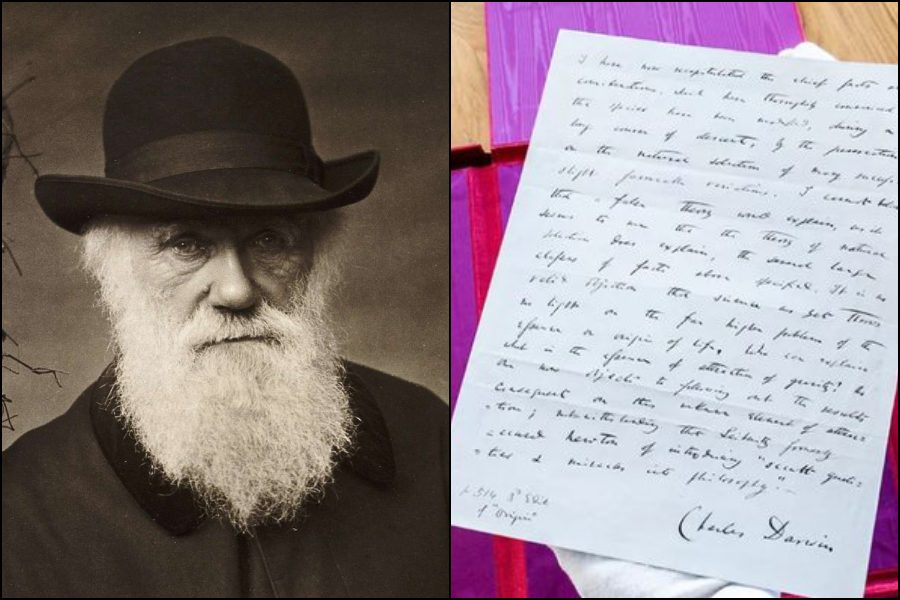 I have now recapitulated the chief facts
considerations, which have thoroughly convinced
the species have been modified, during a
long course of descent, by the preservation
or the natural selection of many
slight favourable variations. I cannot
that a false theory would explain, as it
seems to me that the theory of natural
selection does explain, the several large
classes of facts above specified. It is no
valid objection that science as yet throws
no light on the far higher problem of the
essence or origin of life. Who can explain
what is the essence of attraction of gravity? No
one now objects to following out the results
consequent on this unknown element of attrac
-tion; notwithstanding that Leibnitz formerly
accused Newton of introducing "occult quali-
-ties & miracles into philosophy".—
p 514 3d Edit
of "Origin"
Charles Darwin